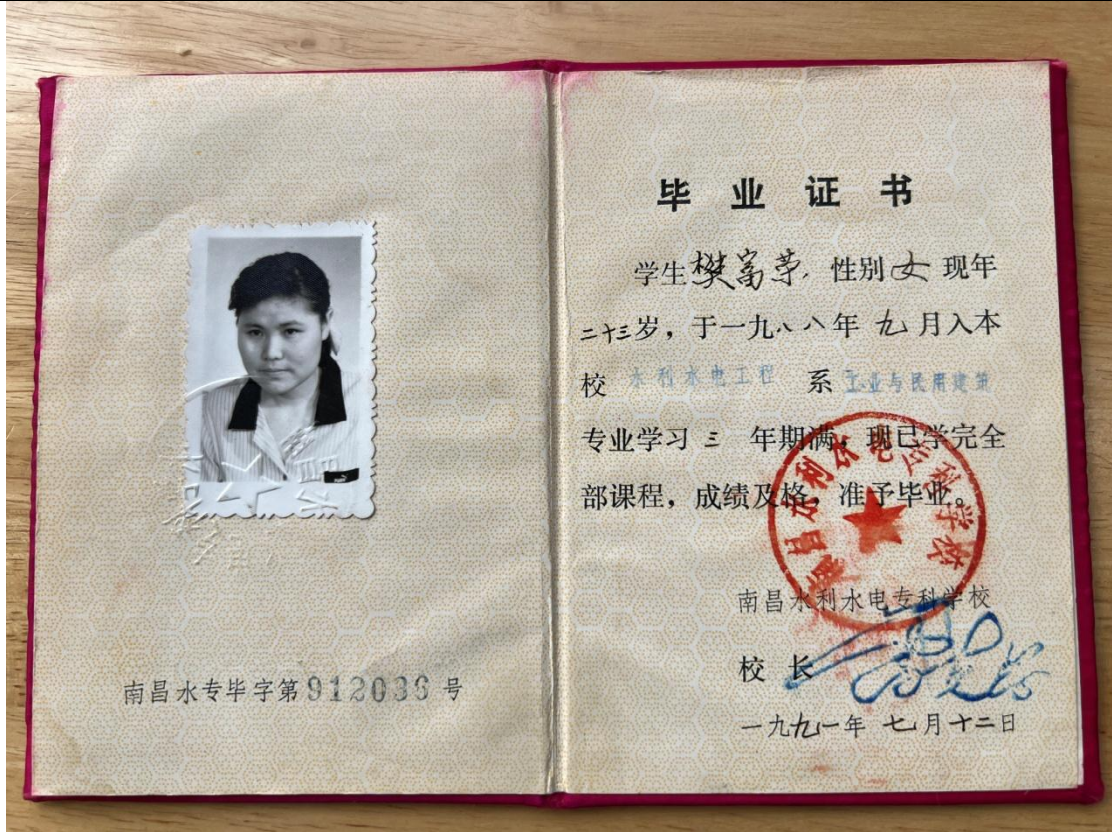 南昌水专毕字第912036号
毕业证书
学生樊富苇，性别女现年
二十三岁，于一九八八年九月入本
校水利水电工程系工业与民用建筑
专业学习三年期满，现已学完全
部课程，成绩及格，准予毕业。
南昌水利水电专科学校
南昌水利水电专科学校
校长
一九九一年七月十二日